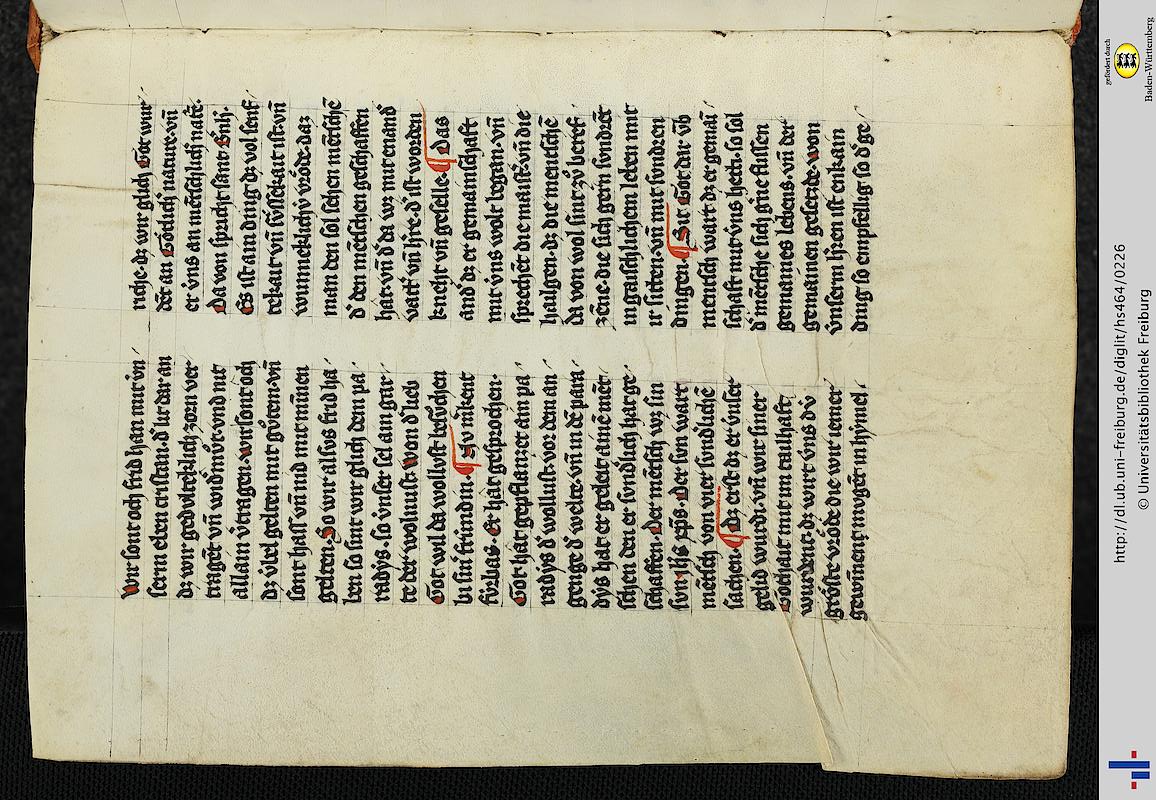 Wir sont och frid han mit vn
sern eltern enstan. d' lit dar an
dz wir gedulteklich zorn ver
tragēt vn̄ widmůt. vnd nit
allain v'tragen. wir sont och
dz vbel gelten mit gůtem. vn̄
sont hass vn̄ nid mit minnen
gelten. So wir alsvs frid ha
ben so sint wir glich dem pa
radys. so ist vnser sel ain gar
te der wolnust. Von d' lieb
Got wil da wollust besvchen
bi sin frúndin. ¶ Sv minent
fúrbas. Er hat gesprochen.
Got hat gepflanzet ain pa
radys d' wollust. vor dem an
genge d' welte. vn̄ in dē para
dys hat er geleit ainē mēt
schen den er svndlich hat ge
schaffen. Der mētsch wz sin
svn. ih's xp̄s. Der svn wart
mētsch von vier svndlichē
sachen. ¶ Dz erst dz er vnser
gelid wurdi. vn̄ wir siner
Gothait mit im tailhaft
wurdent. dz wirt vns dv́
gröste vröde die wir iener
gewinnent mvgēt in hymel
riche. dz wir glich Got wur
dēt an Götlich nature. vn̄
er vns an mētschlich' natē.
Da von spricht sant Bnh.
Es ist ain ding dz vol senf
tekait vn̄ sv́ssekait ist. vn̄
wunneklich' vröde. daz
man den sol sehen mētschē
d' den mētschen geschaffen
hat. vn̄ d' da wz mit enand
vatt' vn̄ h're. d' ist worden
kneht vn̄ geselle. ¶ Das
and' dz er gemainschaft
mit vns wolt began. vn̄
sprechēt die maist'. vn̄ die
hailgen. dz die mentschē
da von wol sint zv beref
zēne. die sich gern svndrēt
in gaischlichem leben mit
ir sitten. vn̄ mit svndren
dingen. ¶ Sit Got dar vb
mentsch wart dz er gemai
schaft mit vns hett. so sol
d' mētsche sich g'ne flissen
gemaines lebens. vn̄ der
gemainen gesetzde. won
vnserm h'ren ist enkain
ding so empfellig so d' ge
gefördert durch
Baden-Württemberg
http://dl.ub.uni-freiburg.de/diglit/hs464/0226
© Universitätsbibliothek Freiburg